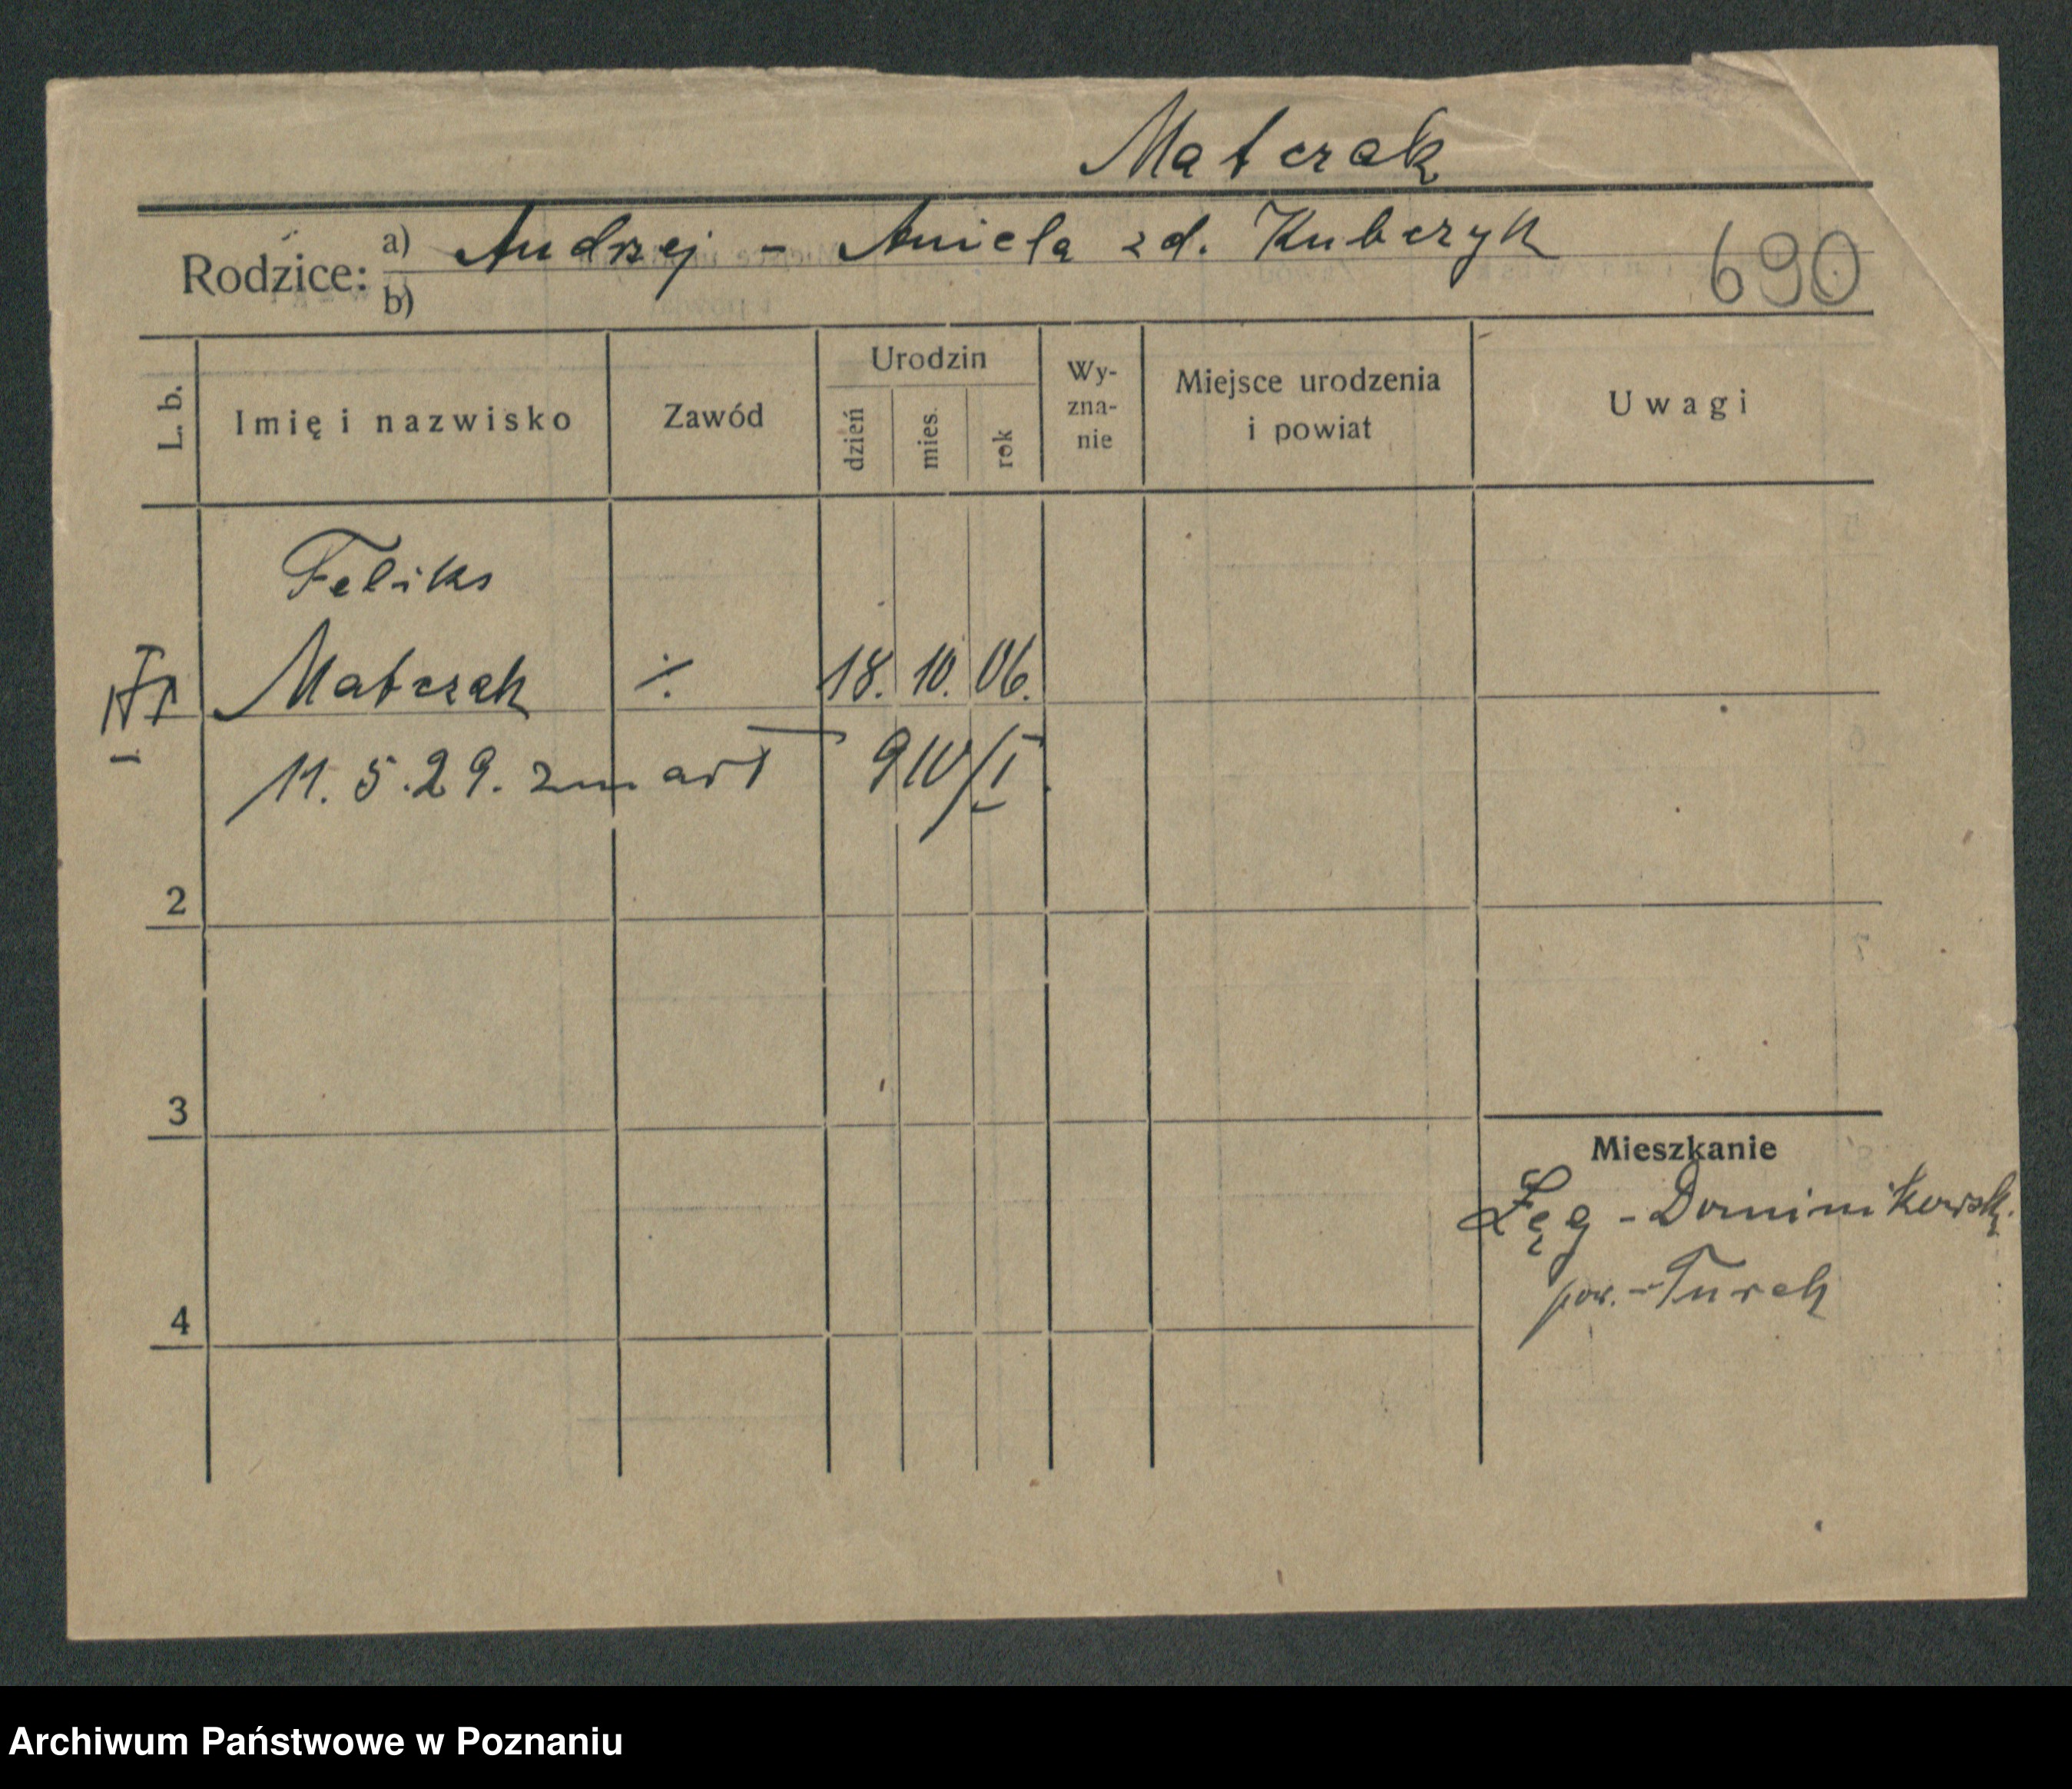 Matczak
Rodzice: a) Andrzej - Aniela zd. Kubczyk
b)
690
L. b.
Imię i nazwisko
Zawód
Urodzin
dzień
mies.
rok
Wy-
zna-
nie
Miejsce urodzenia
i powiat
Uwagi
Feliks
Matczak ·/. 18. 10. 06.
11. 5. 29. zmarł
2
3
4
Mieszkanie
Łęg - Dominikowsk.
pow. - Turek
Archiwum Państwowe w Poznaniu